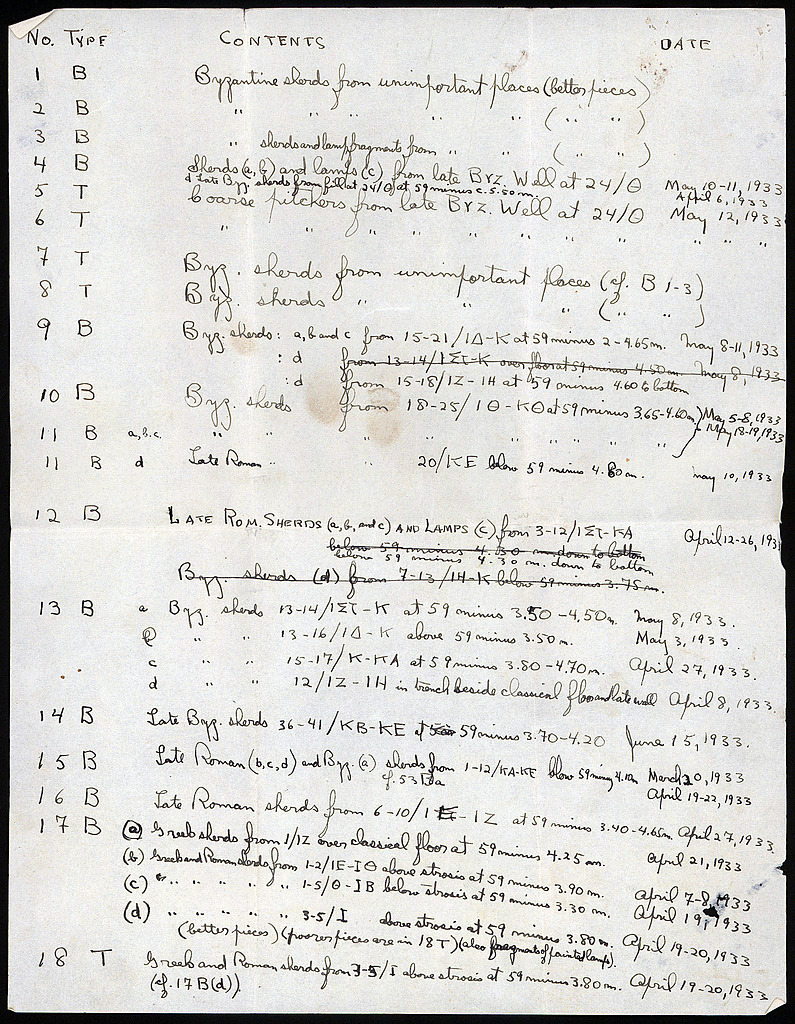 No. TYPE CONTENTS DATE
1 B Byzantine sherds from unimportant places (better pieces)
2 B " " " " ( " " )
3 B " sherds and lamp fragments from " " ( " " )
4 B Sherds (a, b) and lamps (c) from late Byz. Well at 24/Θ May 10-11, 1933
d Late Byz. sherds from fill at 24/Θ at 59 minus c. 5.50 m. April 6, 1933
5 T Coarse pitchers from late Byz. Well at 24/Θ May 12, 1933
6 T " " " " " " " " " " "
7 T Byz. sherds from unimportant places (cf. B 1-3)
8 T Byz. sherds " " " ( " " )
9 B Byz. sherds: a, b and c from 15-21/ΙΔ-Κ at 59 minus 2-4.65 m. May 8-11, 1933
: d from 13-14/ΙΣΤ-Κ over floor at 59 minus 4.50 m. May 8, 1933
: d from 15-18/ΙΖ-ΙΗ at 59 minus 4.60 to bottom
10 B Byz. sherds from 18-25/ΙΘ-ΚΘ at 59 minus 3.65-4.60 m. May 5-8, 1933
11 B a,b,c. " " " " " " " " " May 18-19, 1933
11 B d Late Roman " " 20/ΚΕ below 59 minus 4.80 m. May 10, 1933
12 B LATE ROM. SHERDS (a, b, and c) AND LAMPS (c) from 3-12/ΙΣΤ-ΚΑ April 12-26, 193
below 59 minus 4.30 m. down to bottom
below 59 minus 4.30 m. down to bottom
Byz. sherds (d) from 7-13/ΙΗ-Κ below 59 minus 3.75 m.
13 B a Byz. sherds 13-14/ΙΣΤ-Κ at 59 minus 3.50-4.50 m. May 8, 1933.
b " " 13-16/ΙΔ-Κ above 59 minus 3.50 m. May 3, 1933.
c " " 15-17/Κ-ΚΑ at 59 minus 3.80-4.70 m. April 27, 1933.
d " " 12/ΙΖ-ΙΗ in trench beside classical floor and late wall April 8, 1933.
14 B Late Byz. sherds 36-41/ΚΒ-ΚΕ at 59 minus 3.70-4.20 June 15, 1933.
15 B Late Roman (b, c, d) and Byz. (a) sherds from 1-12/ΚΑ-ΚΕ below 59 minus 4.10 m March 20, 1933
cf. 53 B a April 19-22, 1933
16 B Late Roman sherds from 6-10/ΙΕ-ΙΖ at 59 minus 3.40-4.65 m. April 27, 1933.
17 B (a) Greek sherds from 1/ΙΖ over classical floor at 59 minus 4.25 m. April 21, 1933
(b) Greek and Roman sherds from 1-2/ΙΕ-ΙΘ above strosis at 59 minus 3.90 m. April 7-8, 1933
(c) " " " " " 1-5/Θ-ΙΒ below strosis at 59 minus 3.30 m. April 19, 1933
(d) " " " " " 3-5/Ι above strosis at 59 minus 3.80 m. April 19-20, 1933
(better pieces) (poorer pieces are in 18 T) (also fragments of painted lamps).
18 T Greek and Roman sherds from 3-5/Ι above strosis at 59 minus 3.80 m. April 19-20, 1933
(cf. 17 B (d))